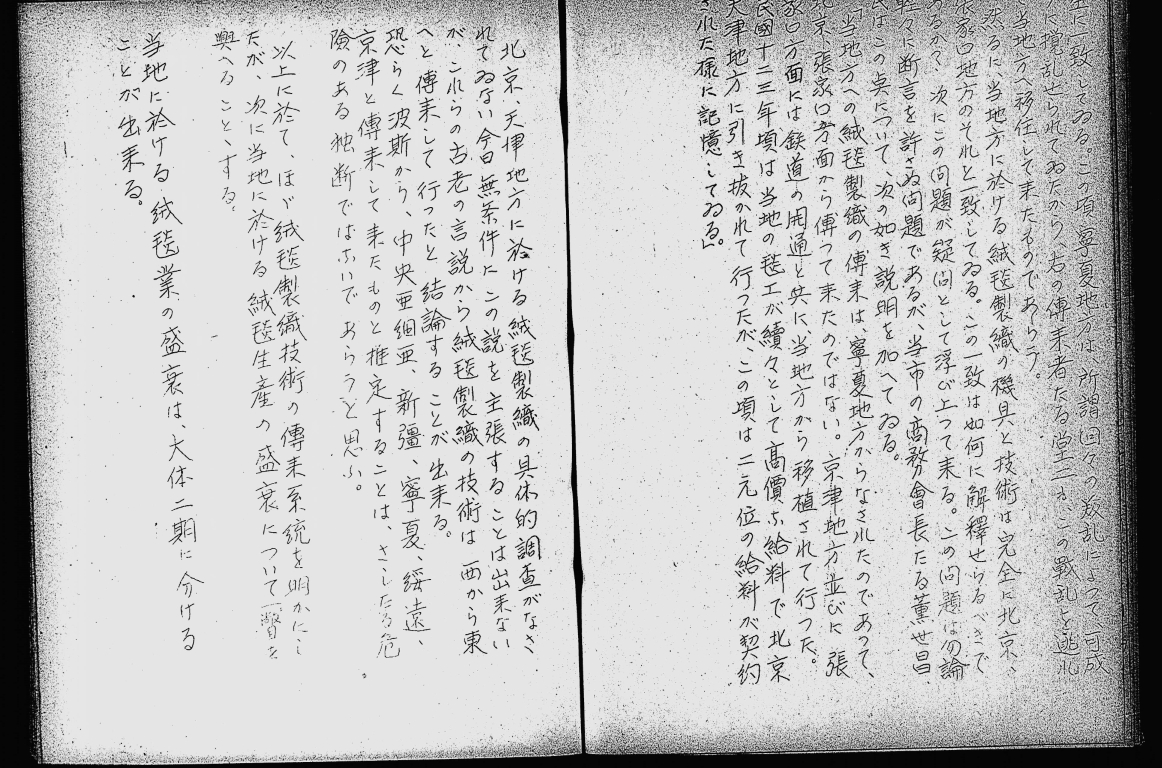 一致してゐる。この頃、寧夏地方は、所謂「回々の叛乱」によつて、可成
乱せられてゐたから、右の傳来者たる堂二も、この戰乱を逃れ
当地方へ移住して来たものであらう。
然るに、当地方に於ける絨毯製織の機具と技術は完全に北京、
張家口地方のそれと一致してゐる。この一致は如何に解釋せらるべきで
あるか、次にこの問題が疑問として浮び上つて来る。この問題は勿論
軽々に断言を許さぬ問題であるが、当市の商務會長たる董世昌
氏はこの点について、次の如き説明を加へてゐる。
「当地方への絨毯製織の傳来は、寧夏地方からなされたのであつて、
北京、張家口方面から傳つて来たのではない。京津地方並びに張
家口方面には鉄道の開通と共に、当地方から移植されて行つた。
民國十二三年頃は当地の毯工が續々として高價な給料で北京
天津地方に引き抜かれて行つたが、この頃は二元位の給料が契約
された様に記憶してゐる。」
北京、天津地方に於ける絨毯製織の具体的調査がなさ
れてゐない今日、無条件にこの説を主張することは出来ない
が、これらの古老の言説から絨毯製織の技術は西から東
へと傳来して行つたと結論することが出来る。
恐らく波斯から、中央亜細亜、新疆、寧夏、綏遠、
京津と傳来して来たものと推定することは、さしたる危
険のある独断ではないであらうと思ふ。
以上に於て、ほゞ絨毯製織技術の傳来系統を明かにし
たが、次に当地に於ける絨毯生産の盛衰について一瞥を
與へることゝする。
当地に於ける絨毯業の盛衰は、大体二期に分ける
ことが出来る。